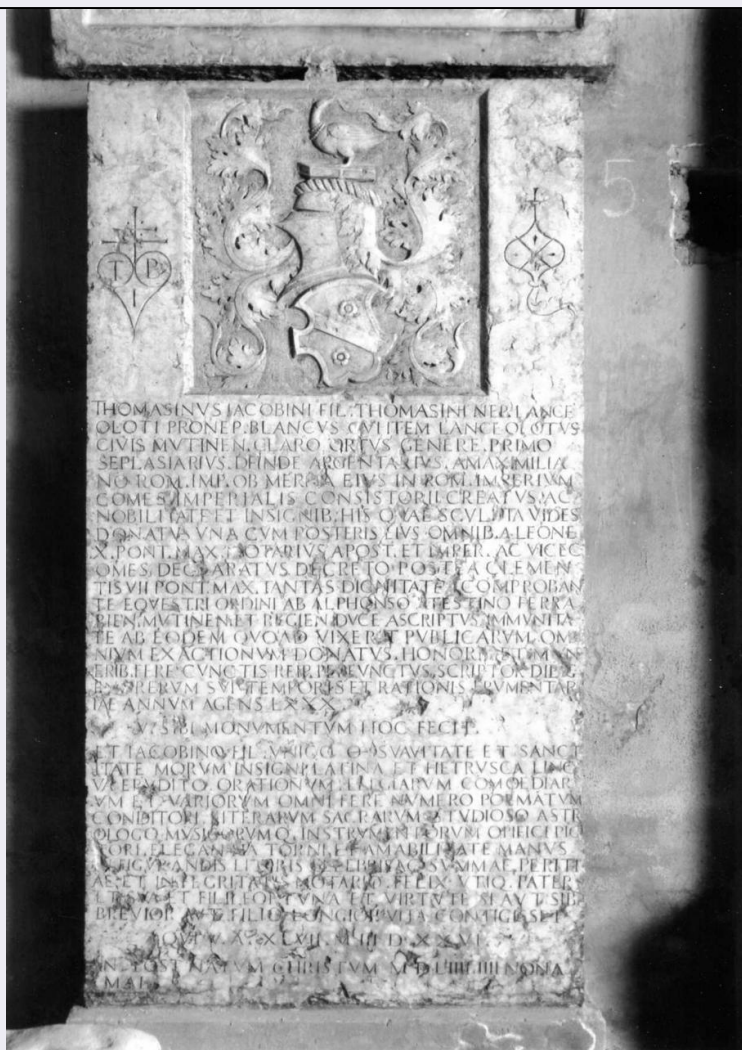 5
A
T B
I
THOMASINVS IACOBINI FIL. THOMASINI NEP. LANCE
OLOTI PRONEP. BLANCVS QVI ITEM LANCEOLOTVS
CIVIS MVTINEN. CLARO ORTVS GENERE. PRIMO
SEPLASIARIVS. DEINDE ARGENTARIVS. A MAXIMILIA
NO ROM. IMP. OB MERITA EIVS IN ROM. IMPERIVM
COMES IMPERIALIS CONSISTORII CREATVS. AC
NOBILITATE ET INSIGNIB. HIS QVAE SCVLPTA VIDES
DONATVS VNA CVM POSTERIS EIVS OMNIB. A LEONE
X. PONT. MAX. NOTARIVS APOST. ET IMPER. AC VICEC
OMES DECLARATVS DECRETO POSTEA CLEMEN
TIS VII PONT. MAX. TANTAS DIGNITATES COMPROBAN
TE EQVESTRI ORDINI AB ALPHONSO ATESTINO FERRA
RIEN. MVTINEN ET REGIEN. DVCE ASCRIPTVS. IMMVNITA
TE AB EODEM QVOAD VIXERIT PVBLICARVM OM
NIVM EXACTIONVM DONATVS. HONORIB. ET MVN
ERIB. FERE CVNCTIS REIP. PERFVNCTVS. SCRIPTOR DILIG
RERVM SVI TEMPORIS ET RATIONIS FRVMENTAR
IAE ANNVM AGENS LXXX
V. SIBI MONVMENTVM HOC FECIT.
ET IACOBINO FIL. VNICO SVAVITATE ET SANCT
ITATE MORVM INSIGNI LATINA ET HETRVSCA LING
VA ERVDITO. ORATIONVM. ELEGIARVM COMOEDIAR
VM ET VARIORVM OMNI FERE NVMERO POEMATVM
CONDITORI. LITERARVM SACRARVM STVDIOSO ASTR
OLOGO. MVSICORVMQ. INSTRVMENTORVM OPIFICI PIC
TORI. ELEGANTIA TORNI. ET AMABILITATE MANVS
FIGVRANDIS LITERIS CELEBRI AC SVMMAE PERITI
AE. ET INTEGRITATIS NOTARIO. FELIX VTIQ. PATER
ET FILII FORTVNA ET VIRTVTE SI AVT SIBI
BREVIOR AVT FILIO LONGIOR VITA CONTIGISSET
QVI V. A.
POST NATVM CHRISTVM NONA
MAI